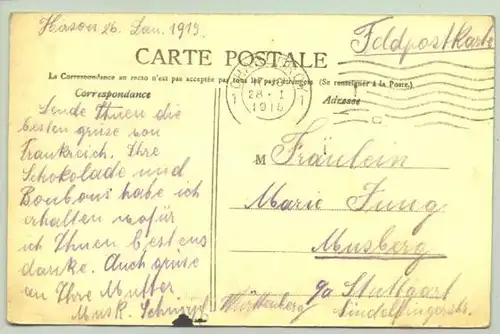 Hirson 26. Jan. 1915.
Feldpostkarte
CARTE POSTALE
La Correspondance au recto n'est pas acceptée par tous les pays étrangers (Se renseigner à la Poste.)
Correspondance
Adresse
28. I
1915
Sende Ihnen die
besten grüse von
Frankreich. Ihre
Schokolade und
Bonbons habe ich
erhalten wofür
ich Ihnen bestens
danke. Auch grüse
an Ihre Mutter
Musk.
M Fräulein
Marie Jung
Musberg
Württemberg
Stuttgart